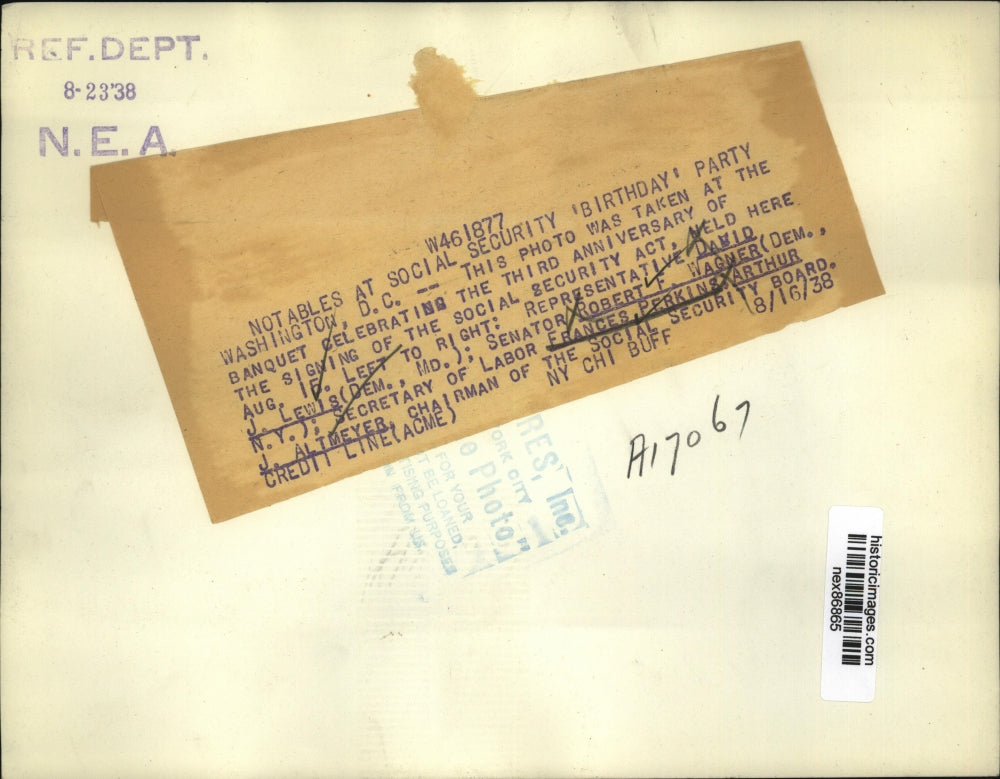 REF. DEPT.
8-23'38
N.E.A.
W461877
NOTABLES AT SOCIAL SECURITY 'BIRTHDAY' PARTY
WASHINGTON, D.C. -- THIS PHOTO WAS TAKEN AT THE
BANQUET CELEBRATING THE THIRD ANNIVERSARY OF
THE SIGNING OF THE SOCIAL SECURITY ACT, HELD HERE
AUG. LEFT TO RIGHT: REPRESENTATIVE DAVID
J. LEWIS (DEM., MD.); SENATOR ROBERT F. WAGNER (DEM.,
N.Y.); SECRETARY OF LABOR FRANCES PERKINS; ARTHUR
J. ALTMEYER, CHAIRMAN OF THE SOCIAL SECURITY BOARD.
CREDIT LINE (ACME) NY CHI BUFF 8/16/38
A17067
RES, Inc.
ORK CITY
Photo"
FOR YOUR
T BE LOANED,
ISING PURPOSES
N FROM US.
historicimages.com
nex86865